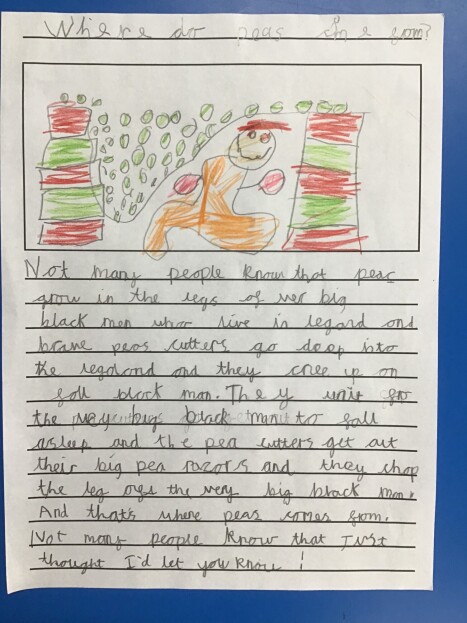 Where do peas from?
Not many people know that peas
grow in the legs of ver big
black men who live in legand and
brave peas cutters go deep into
the and they creep up on
black man. They wait for
the very black man to fall
asleep and the pea cutters get out
their big pea razors and they chop
the leg the very big black man.
And that's where peas comes from.
Not many people know that Just
thought I'd let you know !